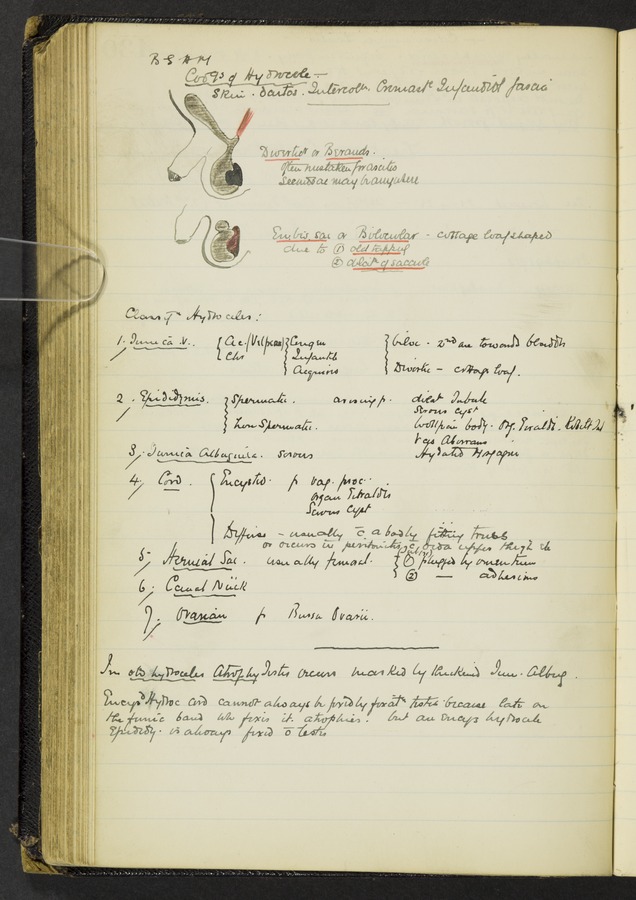 Covgs of Hydrocele -
Skin . Dartos . Intercoln. Cremastc Infundibl fascia
Diverticr or Berauds.
Often mistaken for ascites
Second sac may be anywhere
En bis. sac or Bilocular - cottage loaf shaped
due to (1) old tapping
(2) dilatn of saccule
Classfn Hydroceles :
1. Tunica v. Congen
Chr Infantile biloc. 2nd sac towards bladder
Acquired Divertic - cottage loaf.
2. Epididymis. Spermatic. arising fr. dilat Tubule
Serous cyst
Non Spermatic. Wolffian body. Org. Giraldi. Kobelt
Vas Aberrans
3. Tunica Albuginea. serous Hydatid Morgagni
4. Cord. Encysted. fr vag. proc.
organ Giraldis
Serous cyst
Diffuse - usually c̄ a badly fitting truss
or occurs in peritonitis c̄ oedema upper thigh &c
5. Hernial Sac. usually femoral. (1) plugged by omentum
(2) — adhesions
6. Canal Nück
7. Ovarian fr Bursa Ovarii.
In old hydroceles atrophy Testis occurs marked by thickened Tun. Albug.
Encysd Hydroc cord cannot always be fixed by fixatn testis because later on
the funic band wh fixes it atrophies. but an encys hydrocele
Epididy. is always fixed c̄ testis